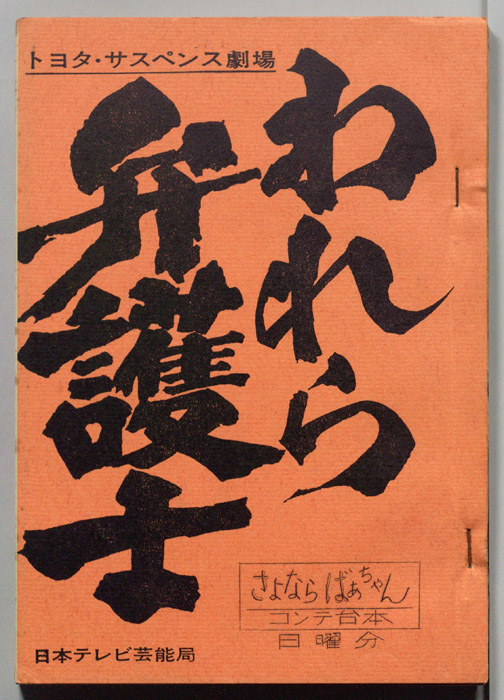 トヨタ・サスペンス劇場
われら
弁護士
さよならばぁちゃん
コンテ台本
日曜分
日本テレビ芸能局